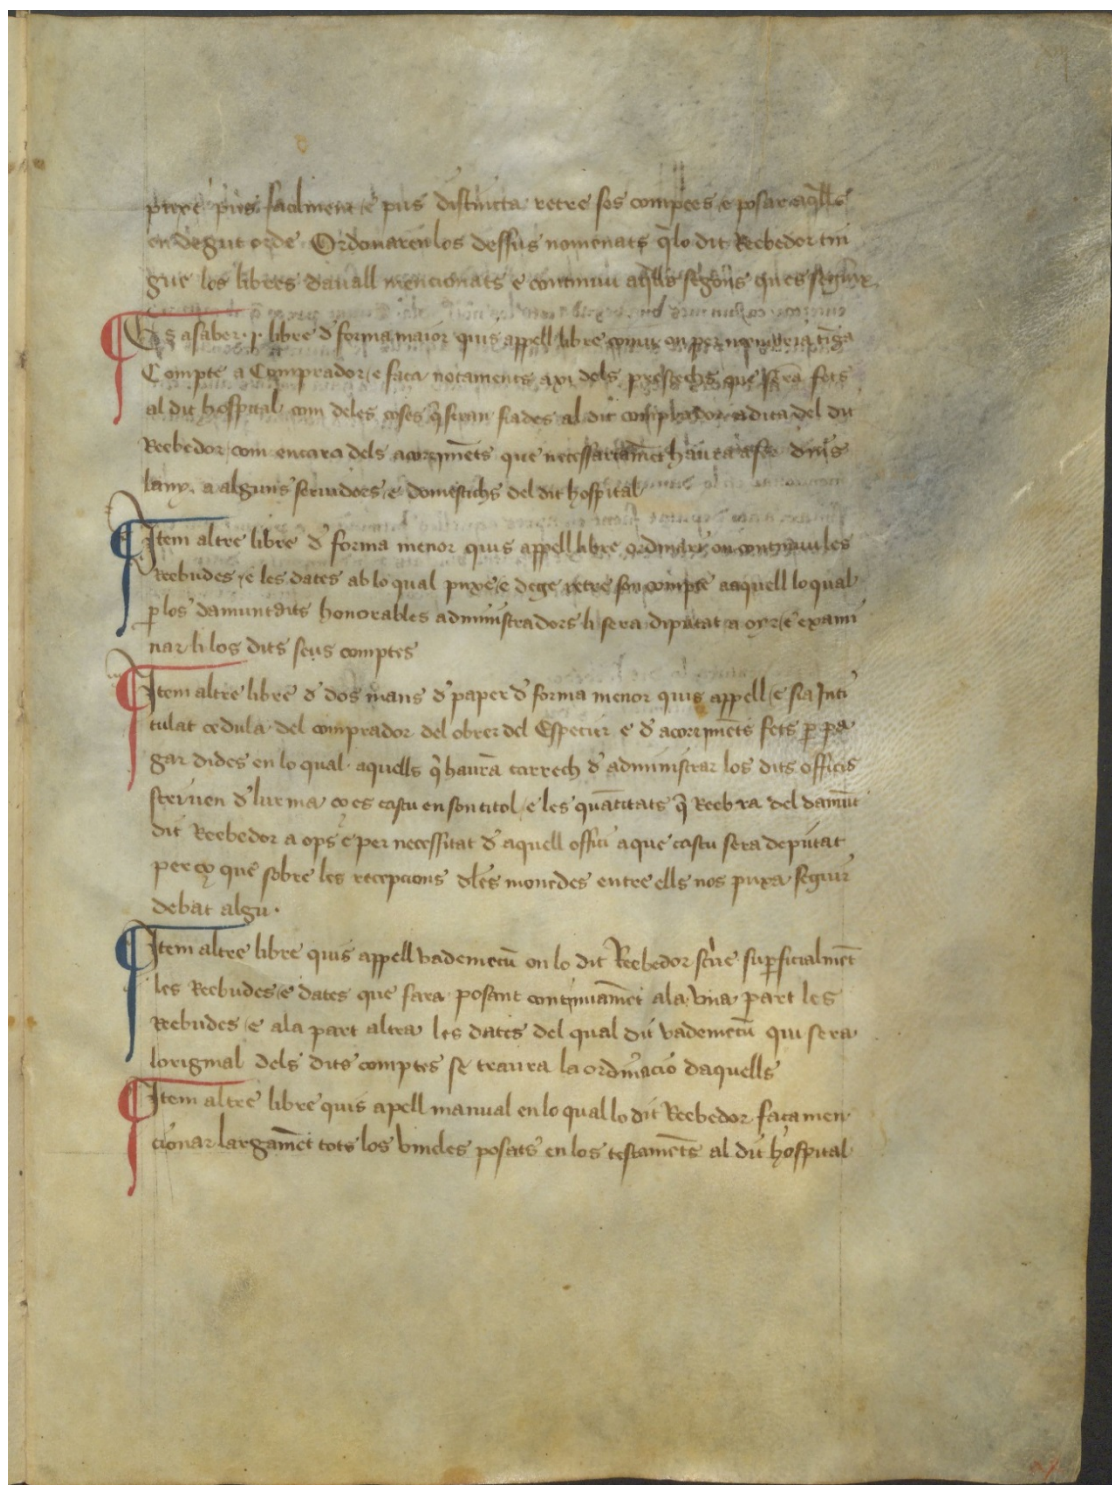 puxe pus facilment e pus distincta retre ses comptes e posar aq̄lls
en degut orde Ordonaren los dessus nomenats q̄ lo dit Reebedor tin
gue los libres dauall mencionats e continuu aq̄lls segons que's segueix
Es asaber .j. libre d' forma maior quis appell libre comu on per
Compte a Comprador e faça notaments axi dels prestechs que serā fets
al dit hospital com deles coses q̄ seran fiades al dit comprador adita del dit
Reebedor com encara dels acorrimēts que necessariamēt haura afer dins
lany a alguns seruidors e domestichs del dit hospital
Item altre libre d' forma menor quis appell libre ordinari on continuu les
Reebudes e les dates ab lo qual puxe e dege retre son compte aaquell lo qual
p̱ los damuntdits honorables administradors li sera diputat a oyr e exami
nar li los dits seus comptes
Item altre libre d' dos mans d' paper d' forma menor quis appell e sia Inti
tulat cedula del comprador del obrer del Especier e d' acorrimēts fets p̱ pa
gar dides en lo qual aquells q̄ haurā carrech d' administrar los dits officis
scriuen d' lur ma ço es cascu en son titol e les quātitats q̄ Reebra del damūt
dit Reebedor a ops e per necessitat d' aquell offici aque cascu sera deputat
perço que sobre les recepcions dles monedes entre ells nos puxa seguir
debat algu.
Item altre libre quis appell vademecū on lo dit Reebedor scriue sup̱ficialmēt
les Reebudes e dates que fara posant continuamēt ala vna part les
Reebudes e ala part altra les dates del qual dit vademecū qui sera
loriginal dels dits comptes se traura la ordinacio daquells
Item altre libre quis apell manual en lo qual lo dit Reebedor faça men
cionar largamēt tots los vincles posats en los testamēts al dit hospital